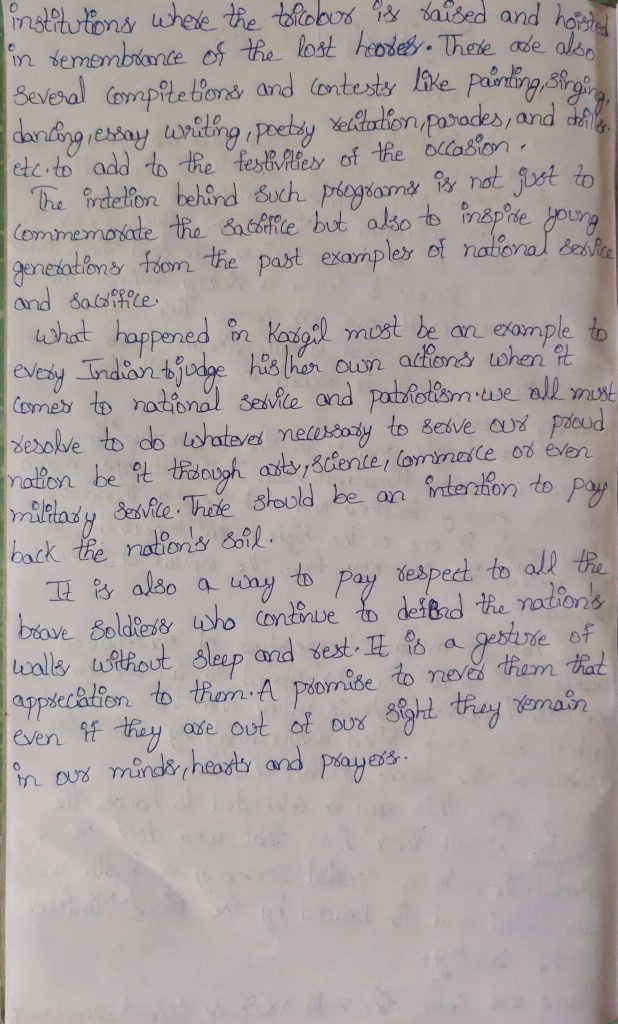 institutions where the tricolour is raised and hoisted
in remembrance of the lost heores. There are also
several compitetions and contests like painting, singing,
dancing, essay writing, poetry recitation, parades, and drills.
etc. to add to the festivities of the occasion.
The intetion behind such programs is not just to
commemorate the sacrifice but also to inspire young
generations from the past examples of national service
and sacrifice.
what happened in Kargil must be an example to
every Indian to judge his/her own actions when it
comes to national service and patriotism. we all must
resolve to do whatever necessary to serve our proud
nation be it through arts, science, commerce or even
military service. There should be an intention to pay
back the nation's soil.
It is also a way to pay respect to all the
brave soldiers who continue to defend the nation's
walls without sleep and rest. It is a gesture of
appreciation to them. A promise to never them that
even if they are out of our sight they remain
in our minds, hearts and prayers.